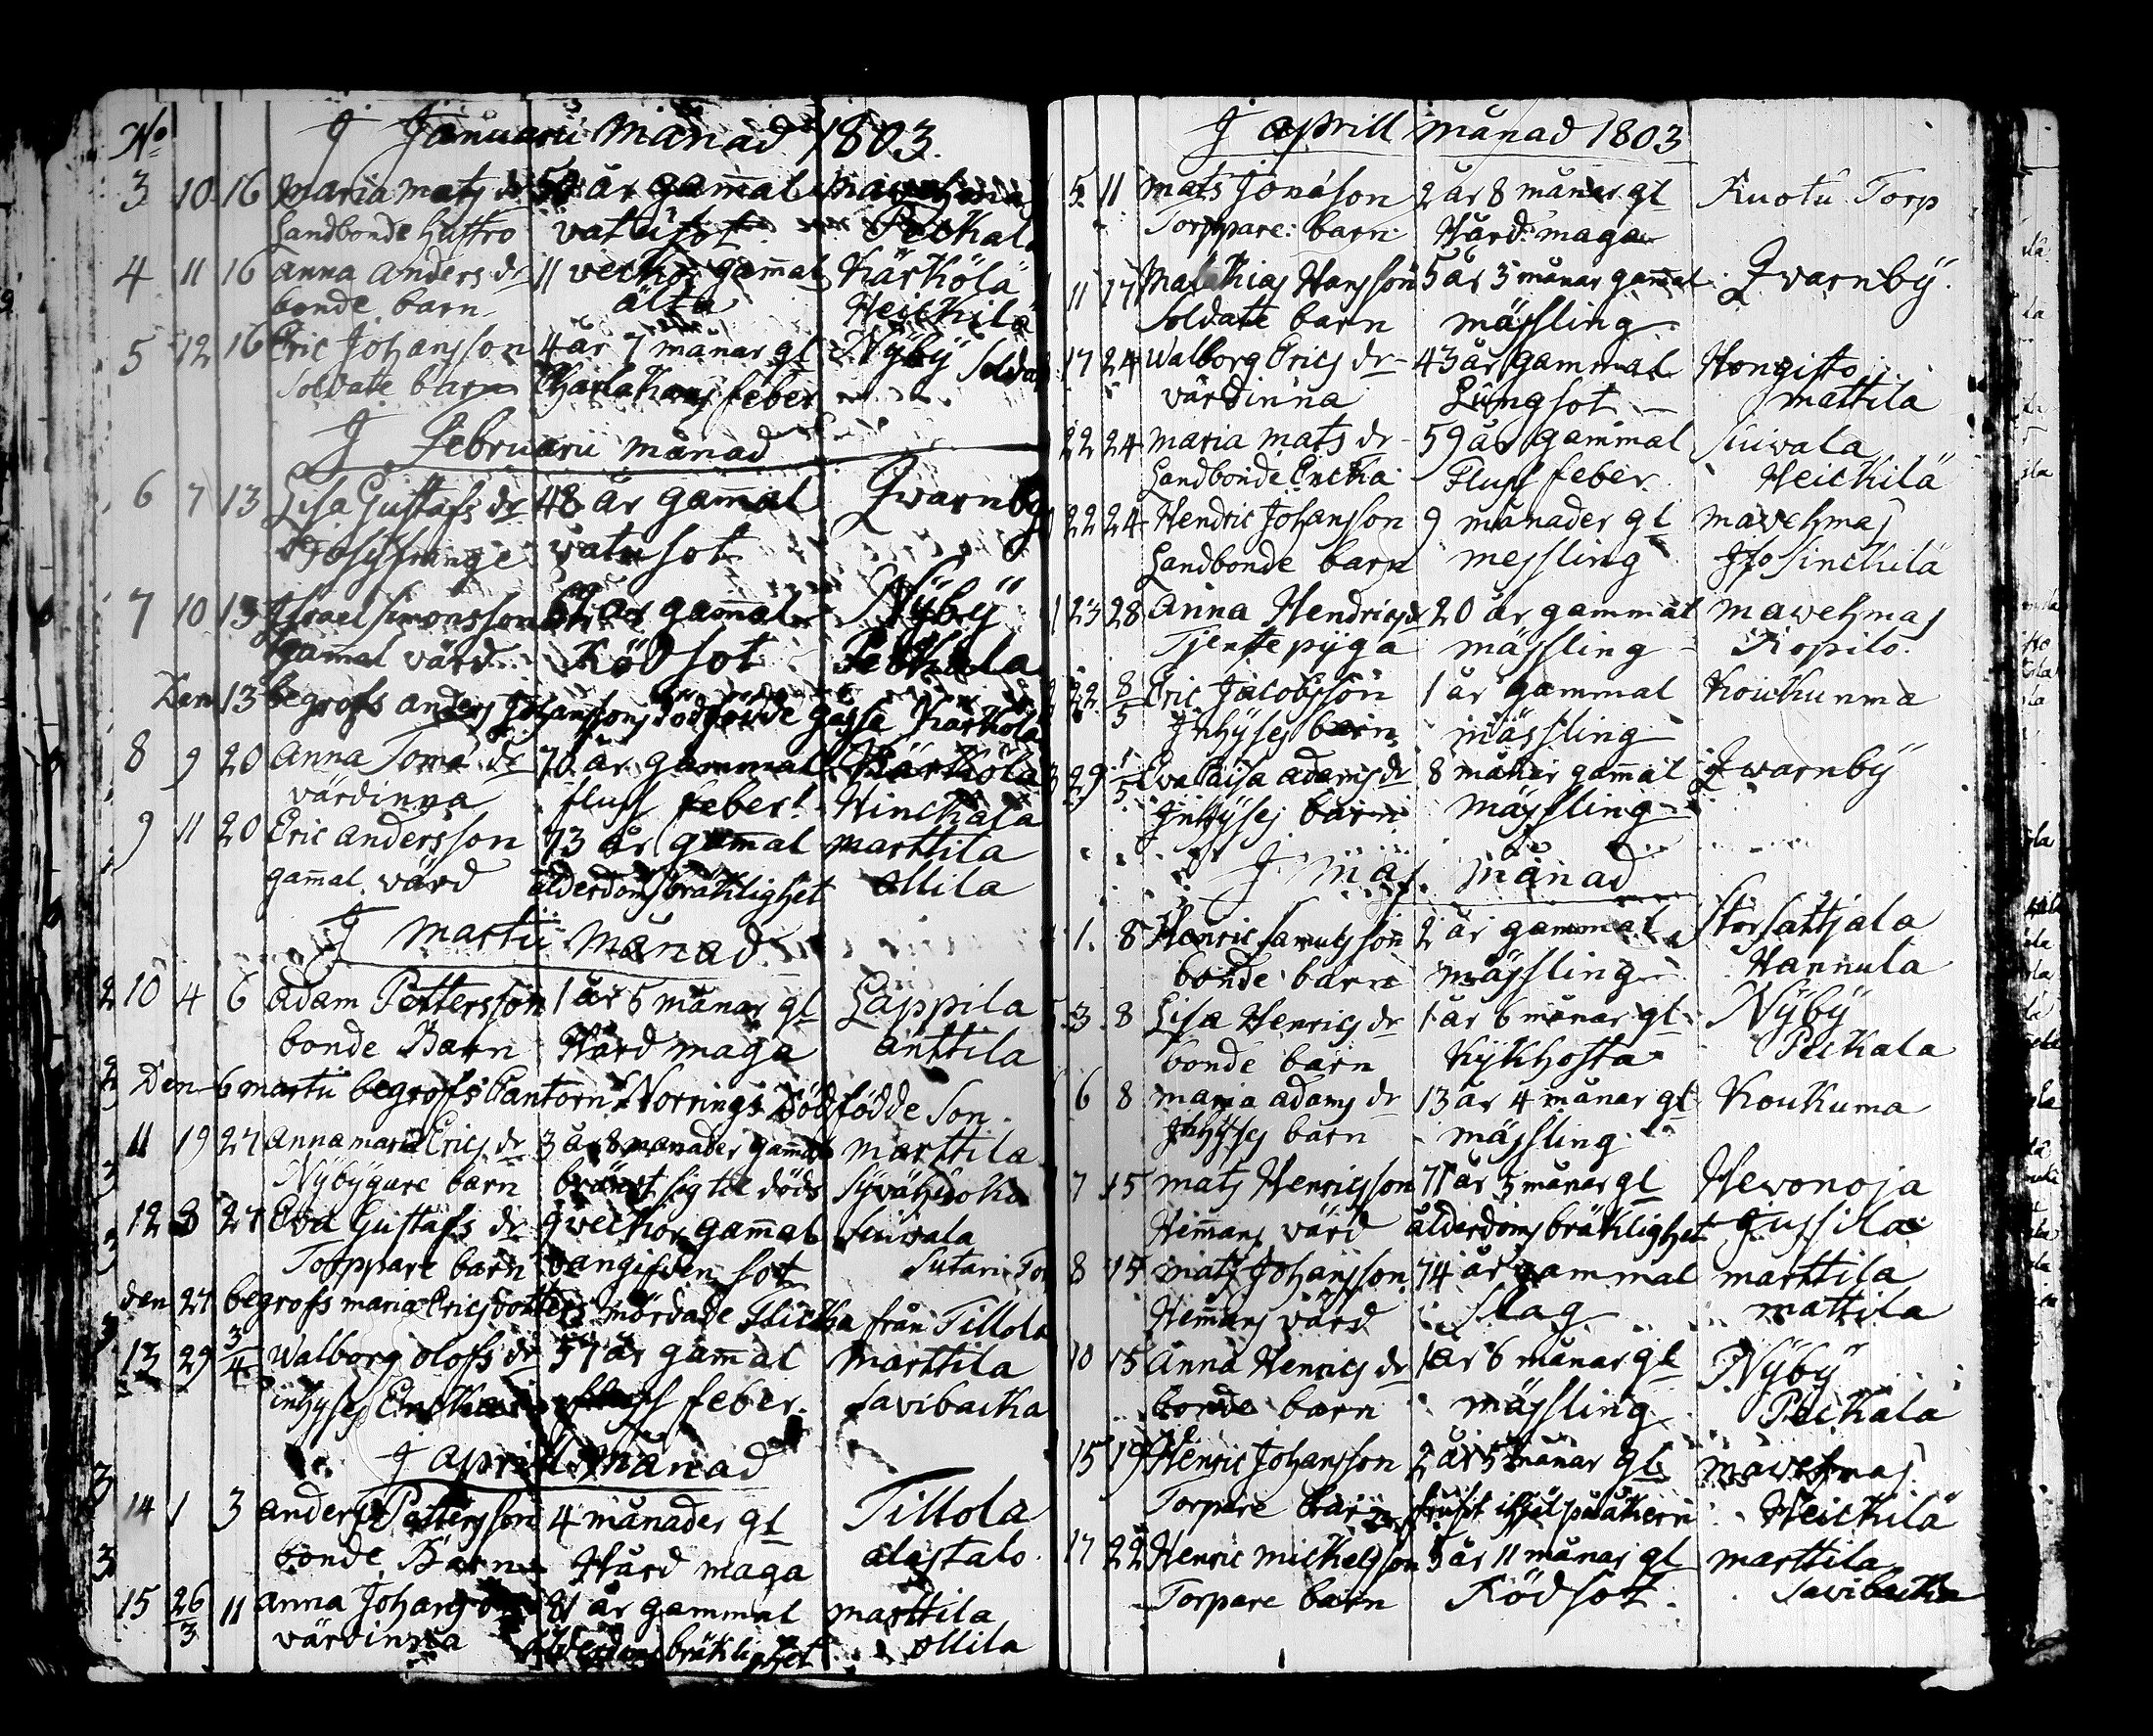 No
J Januarii Månad 1803.
3 10 16 Maria Mats dr 54 år gammal Mawehmaj
Landbonde hustro vatusot Peckala
4 11 16 Anna Anders dr 11 veckor gamal Kärkölä
bonde barn älta Heickilä
5 12 16 Eric Johansson 4 år 7 månar gl Nÿbÿ Soldat
Soldate barn feber
J Februarii månad
6 7 13 Lisa Gustafs dr 48 år gamal Qwarnbÿ
watusot
7 10 13 Israel Simonsson år gamal Nÿbÿ
gamal värd Rödsot Peckala
Den 13 begrofs Anders Johanssons dödfödde gåsse Kärkölä
8 9 20 Anna Toma dr 70 år gammal Kärkölä
värdinna fluss feber Hinckala
9 11 20 Eric andersson 73 år gamal marttila
gamal värd ålderdoms bräklighet ollila
J martii Månad
10 4 6 adam Pettersson 1 år 5 månar gl Lappila
bonde Barn Hård maga anttila
Den 6 martii begrofs Cantorn Norrings Död födde Son
11 19 27 Anna maria Erics dr 3 år 8 månader gamal marttila
Nÿbÿgare barn bränt sig til döds Sÿvähuoko
12 8 27 Eva Gustafs dr 9 veckor gamal Suiwala
Torppare barn oangifven sot Sutari Tor
den 27 begrofs maria Ericsdotters mördade Flicka från Tillola
13 29 3/4 Walborg olofs dr 57 år gamal marttila
inhyses Encka fluss feber Savibacka
J aprill Månad
14 1 3 anders Pettersson 4 månader gl Tillola
bonde Barn Hård maga alastalo
15 26/3 11 anna Johans dr 81 år gammal marttila
värdinna ålderdoms bräklighet ollila
J aprill månad 1803
5 11 mats Jonason 2 år 8 månar gl Kuotu Torp
Torppare barn Hård maga
11 17 Matthias Hansson 5 år 3 månar gammal Qwarnbÿ
Soldate barn mässling
17 24 Walborg Erics dr 43 år gammal Hongisto
värdinna Lungsot mattila
22 24 maria mats dr 59 år gammal Suiwala
Landbonde Encka Fluss feber Heickilä
22 24 Hendric Johansson 9 månader gl mawehmaj
Landbonde barn messling Iso Sinckilä
23 28 Anna Hendrics dr 20 år gammal mawehmaj
Tjenste pÿga mässling Ropilo
22 8/5 Eric Jacobsson 1 år gammal Koukunma
Inhÿses barn mässling
29 1/5 Eva Caisa adams dr 8 månar gamal Qwarnbÿ
Inhÿses barn mässling
J maj månad
1 8 Henric Samulsson 2 år gammal Storsattjala
bonde barn mässling Hannula
3 8 Lisa Henrics dr 1 år 6 månar gl Nÿbÿ
bonde barn Kykhosta Peckala
6 8 maria adams dr 13 år 4 månar gl Koukuma
Inhÿses barn mässling
7 15 mats Henricsson 71 år 5 månar gl Hewonoja
Hemans värd ålderdoms bräklighet Jussila
8 15 mats Johansson 74 år gammal marttila
Hemans värd slag mattila
10 15 Anna Henrics dr 1 år 6 månar gl Nÿbÿ
bonde barn mässling Peckala
15 19 Henric Johansson 2 år 5 månar gl mawehmaj
Torpare barn ihjel på åkern Heickilä
17 22 Henric michelsson 5 år 11 månar gl marttila
Torpare barn Rödsot Savibacka